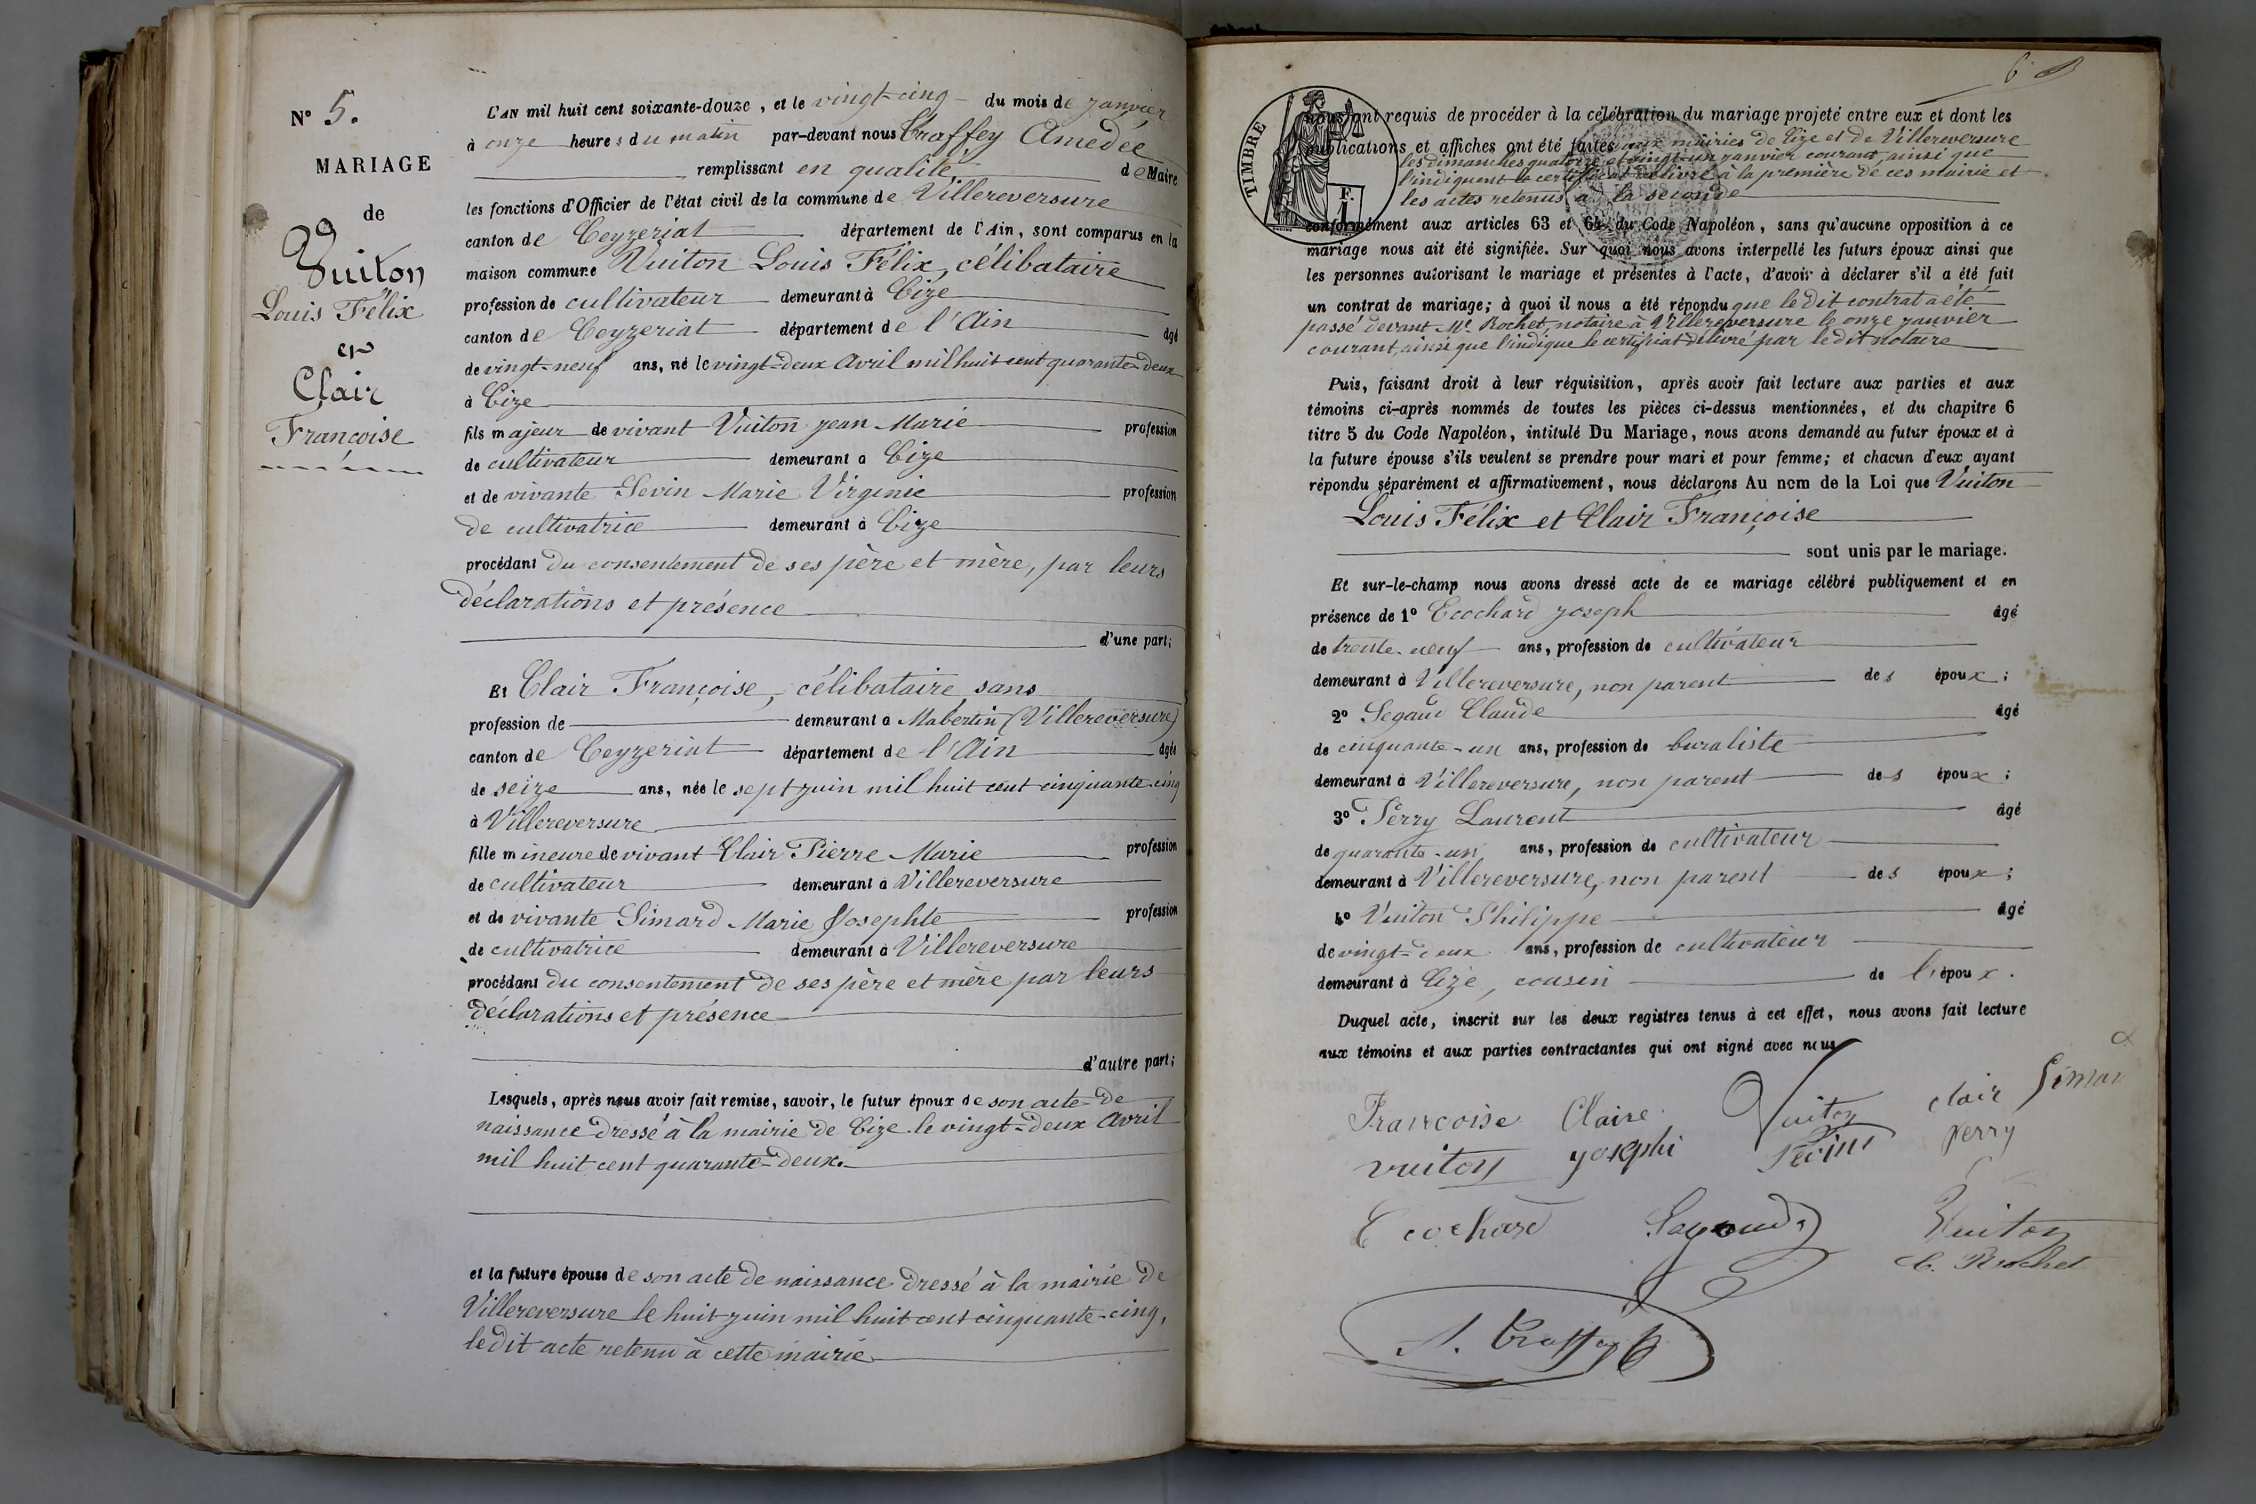 N° 5.
MARIAGE
de
Vuiton
Louis Félix
et
Clair
Françoise
L'AN mil huit cent soixante-douze, et le vingt-cinq du mois de janvier
à onze heures du matin par-devant nous Traffey Amedée
remplissant en qualité de Maire
les fonctions d'Officier de l'état civil de la commune de Villereversure
canton de Ceyzeriat département de l'Ain, sont comparus en la
maison commune Vuiton Louis Félix, célibataire
profession de cultivateur demeurant à Cize
canton de Ceyzeriat département de l'Ain âgé
de vingt-neuf ans, né le vingt-deux Avril mil huit cent quarante-deux
à Cize
fils majeur de vivant Vuiton jean Marie profession
de cultivateur demeurant à Cize
et de vivante Sevin Marie Virginie profession
de cultivatrice demeurant à Cize
procédant du consentement de ses père et mère, par leurs
déclarations et présence
d'une part;
Et Clair Françoise, célibataire sans
profession de demeurant à Mabertin (Villereversure)
canton de Ceyzeriat département de l'Ain âgée
de seize ans, née le sept juin mil huit cent cinquante-cinq
à Villereversure
fille mineure de vivant Clair Pierre Marie profession
de cultivateur demeurant à Villereversure
et de vivante Simard Marie Josephte profession
de cultivatrice demeurant à Villereversure
procédant du consentement de ses père et mère par leurs
déclarations et présence
d'autre part;
Lesquels, après nous avoir fait remise, savoir, le futur époux de son acte de
naissance dressé à la mairie de Cize le vingt-deux Avril
mil huit cent quarante-deux.
et la future épouse de son acte de naissance dressé à la mairie de
Villereversure le huit juin mil huit cent cinquante-cinq,
le dit acte retenu à cette mairie
6
TIMBRE
F.
1
nous ont requis de procéder à la célébration du mariage projeté entre eux et dont les
publications et affiches ont été faites aux mairies de Cize et de Villereversure
les dimanches quatorze et vingt-un janvier courant, ainsi que
l'indiquent le certificat délivré à la première de ces mairie et
les actes retenus à la seconde
conformément aux articles 63 et 64 du Code Napoléon, sans qu'aucune opposition à ce
mariage nous ait été signifiée. Sur quoi nous avons interpellé les futurs époux ainsi que
les personnes autorisant le mariage et présentes à l'acte, d'avoir à déclarer s'il a été fait
un contrat de mariage; à quoi il nous a été répondu que le dit contrat a été
passé devant Me Rochet, notaire à Villereversure le onze janvier
courant, ainsi que l'indique le certificat délivré par le dit notaire
Puis, faisant droit à leur réquisition, après avoir fait lecture aux parties et aux
témoins ci-après nommés de toutes les pièces ci-dessus mentionnées, et du chapitre 6
titre 5 du Code Napoléon, intitulé Du Mariage, nous avons demandé au futur époux et à
la future épouse s'ils veulent se prendre pour mari et pour femme; et chacun d'eux ayant
répondu séparément et affirmativement, nous déclarons Au nom de la Loi que Vuiton
Louis Félix et Clair Françoise
sont unis par le mariage.
Et sur-le-champ nous avons dressé acte de ce mariage célébré publiquement et en
présence de 1° Ecochard joseph âgé
de trente-neuf ans, profession de cultivateur
demeurant à Villereversure, non parent des époux;
2° Segaud Claude âgé
de cinquante-un ans, profession de buraliste
demeurant à Villereversure, non parent des époux;
3° Perry Laurent âgé
de quarante-un ans, profession de cultivateur
demeurant à Villereversure, non parent des époux;
4° Vuiton Philippe âgé
de vingt-deux ans, profession de cultivateur
demeurant à Cize, cousin de l'époux.
Duquel acte, inscrit sur les deux registres tenus à cet effet, nous avons fait lecture
aux témoins et aux parties contractantes qui ont signé avec nous
Francoise Claire Vuiton clair Simar
vuiton josephi perry
Ecochard Segaud Vuiton
C. Rochet
A. Traffey